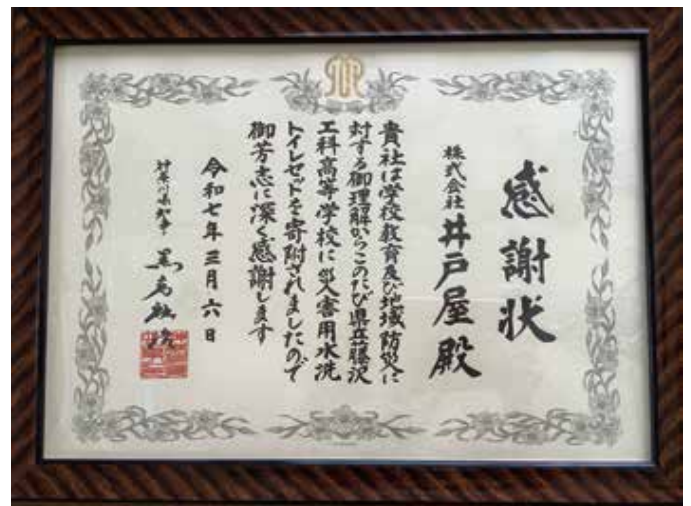 感謝状
株式会社 井戸屋 殿
貴社は学校教育及び地域防災に
対する御理解からこのたび県立藤沢
工科高等学校に災害用水洗
トイレセットを寄附されましたので
御芳志に深く感謝します
令和七年三月六日
神奈川県知事 黒岩祐治